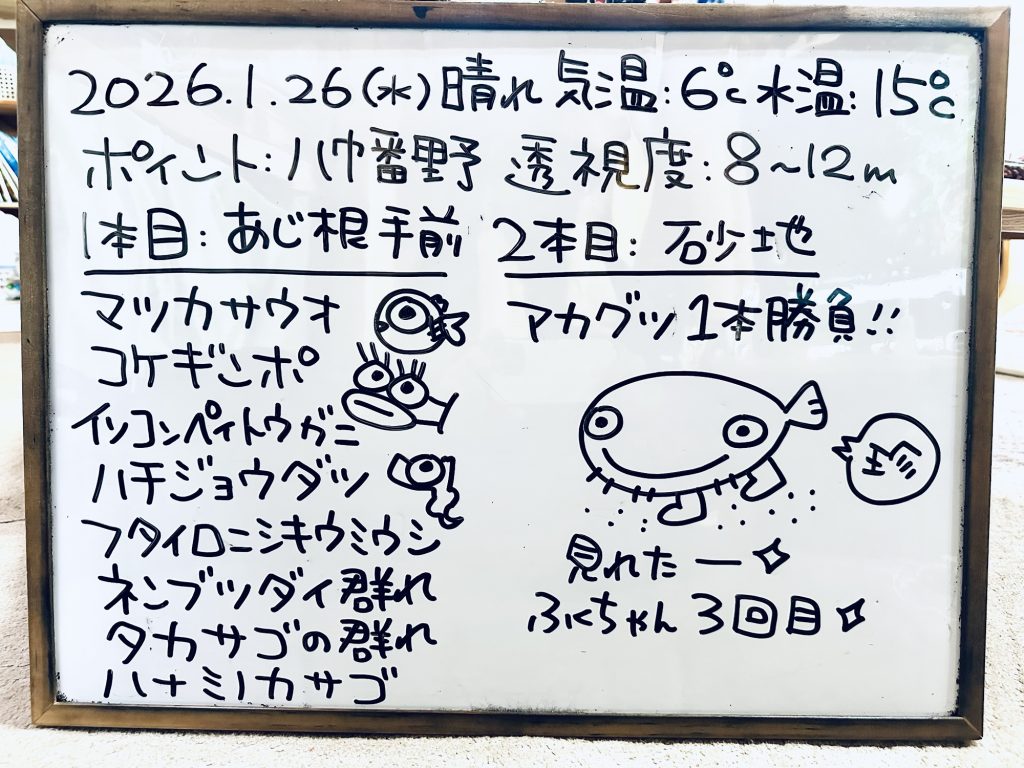 2026.1.26(水)晴れ 気温:6℃ 水温:15℃
ポイント:八幡野 透視度:8~12m
1本目:あじ根手前
マツカサウオ
コケギンポ
イソコンペイトウガニ
ハチジョウダツ
フタイロニシキウミウシ
ネンブツダイ群れ
タカサゴの群れ
ハナミノカサゴ
2本目:砂地
アカグツ1本勝負!!
見れたー
ふくちゃん3回目